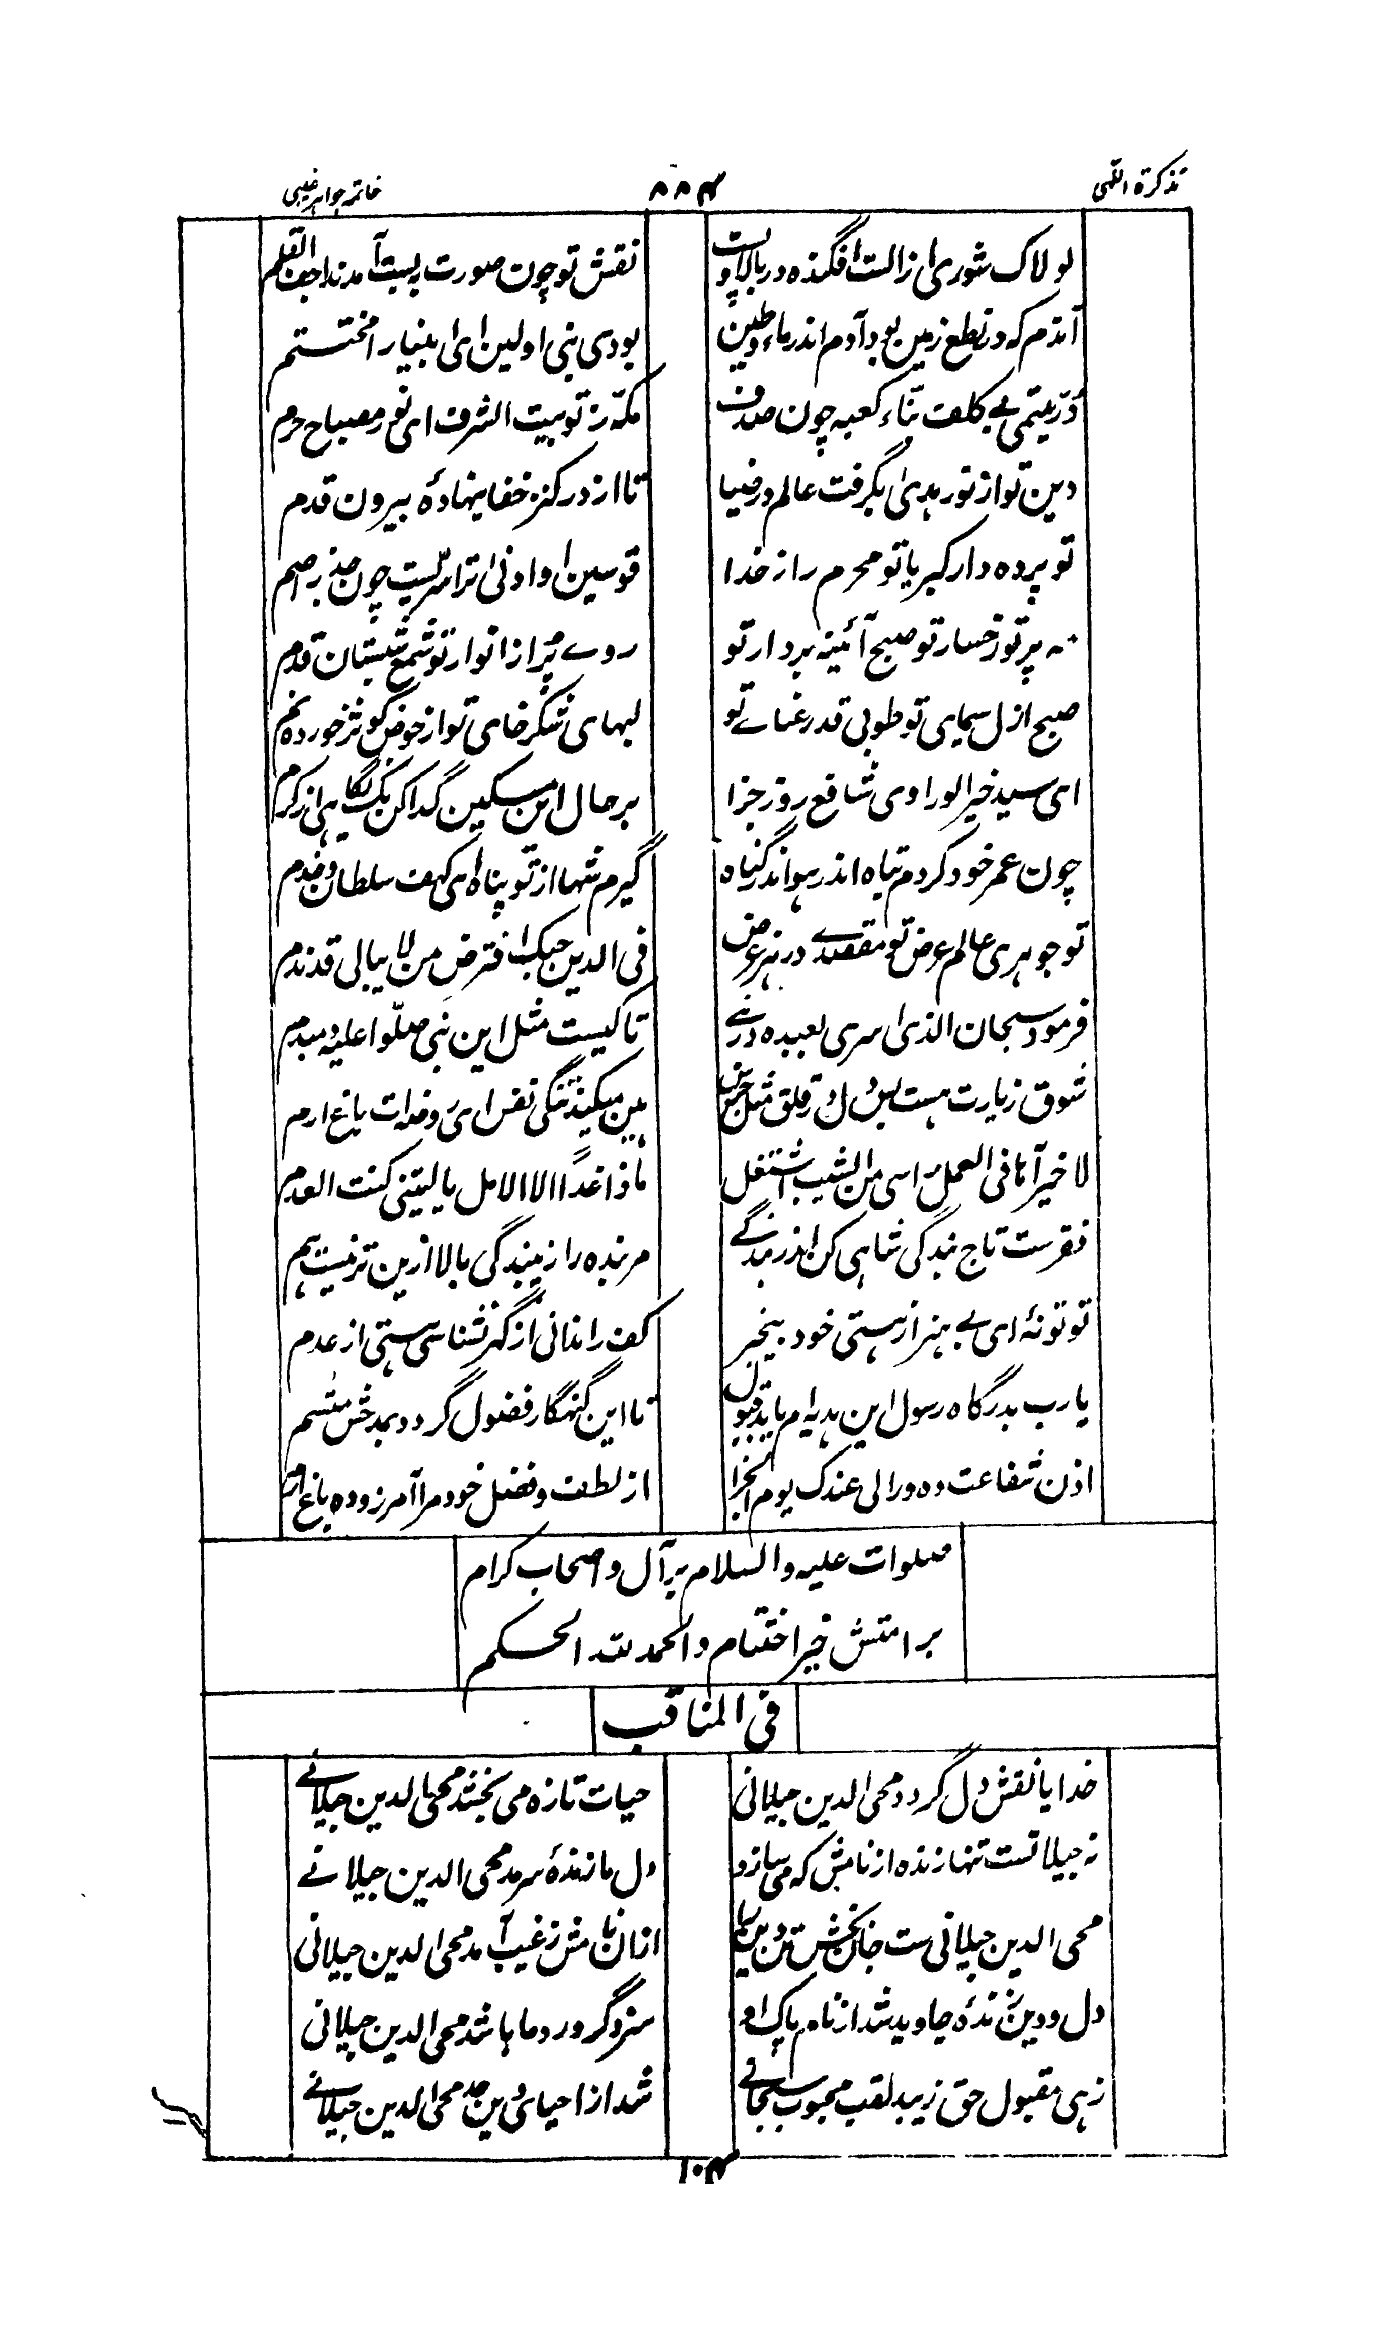 تذکرة النبی
۸۸۴
خاتمه جواهر غیبی
لولاک شوری از الست افگنده در بالا و پست
نقش تو چون صورت ببست آمد ندا جف القلم
آندم که در نطع زمین بود آدم اندر ماء و طین
بودی نبی اولین ای انبیا را مختتم
درّ یتیمی بی کلف بناء کعبه چون صدف
مکّه ز تو بیت الشرف ای نور مصباح حرم
دین تو از نور هدی بگرفت عالم در ضیا
تا از در کنز خفا بنهادهٔ بیرون قدم
تو پرده دار کبریا تو محرم راز خدا
قوسین او ادنی ترا سریست چون جذر اصم
مه پرتو رخسار تو صبح آئینه بردار تو
روے پر از انوار تو شمع شبستان قدم
صبح ازل سیمای تو طوبی قد رعناے تو
لبهای شکر خای تو از حوض کوثر خورده نم
ای سید خیر الورا وی شافع روز جزا
بر حال این مسکین گدا کن یک نگاهی از کرم
چون عمر خود کردم تباه اندر هوا اندر گناه
گیرم شها از تو پناه ای کهف سلطان و خدم
تو جوهری عالم عرض تو مقصدے در هر غرض
فی الدین حبک افترض من لا یبالی قد ندم
فرمود سبحان الذی اسری بعبده در نبے
تا کیست مثل این نبی صلّوا علیه دمبدم
شوق زیارت هست بس دل در قلق مثل جرس
هین میکند تنگی نفس ای روضه ات باغ ارم
لا خیر آنا فی العمل راسی من الشیب اشتعل
ماذا غداً الا الامل یا لیتنی کنت العدم
فقرست تاج بندگی شاهی کن اندر بندگے
مر بنده را زیبندگی بالا ازین تر نیست هم
تو تو نهٔ ای بے هنر از هستی خود بیخبر
کف را ندانی از گهر نشناسی هستی از عدم
یا رب بدرگاه رسول این هدیه ام باید قبول
تا این گنهگار فضول گردد بمدحش متسم
اذن شفاعت ده ورا لی عندک یوم الجزا
از لطف و فضل خود مرا آمرز و ده باغ ارم
صلوات علیه والسلام بر آل و اصحاب کرام
بر امتش خیر اختتام والحمد لله الحکم
فی المناقب
خدایا نقش دل گردد محی الدین جیلانی
حیات تازه می بخشد محی الدین جیلانے
نه جیلانست تنها زنده از نامش که می سازد
دل ما زندهٔ سرمد محی الدین جیلانے
محی الدین جیلانی ست جان بخش تن و دین را
ازان نامش ز غیب آمد محی الدین جیلانی
دل و دین زندهٔ جاوید شد از نام پاک او
سزد گر ورد ما باشد محی الدین جیلانی
زهی مقبول حق زیبد لقب محبوب سبحانے
شد از احیای دین جد محی الدین جیلانے
۱۰۴